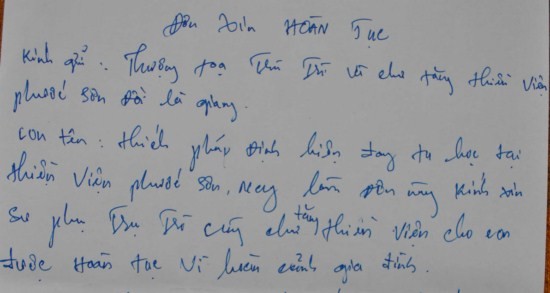 Đơn Xin HOÀN TỤC
Kính gửi: Thượng tọa Trụ Trì và chư tăng thiền viện
phước sơn Đồi lá giang.
con tên: thích pháp Định hiện đang tu học tại
thiền viện phước sơn, nay làm đơn này kính xin
sư phụ Trụ Trì cùng chư tăng thiền viện cho con
được hoàn tục vì hoàn cảnh gia đình.